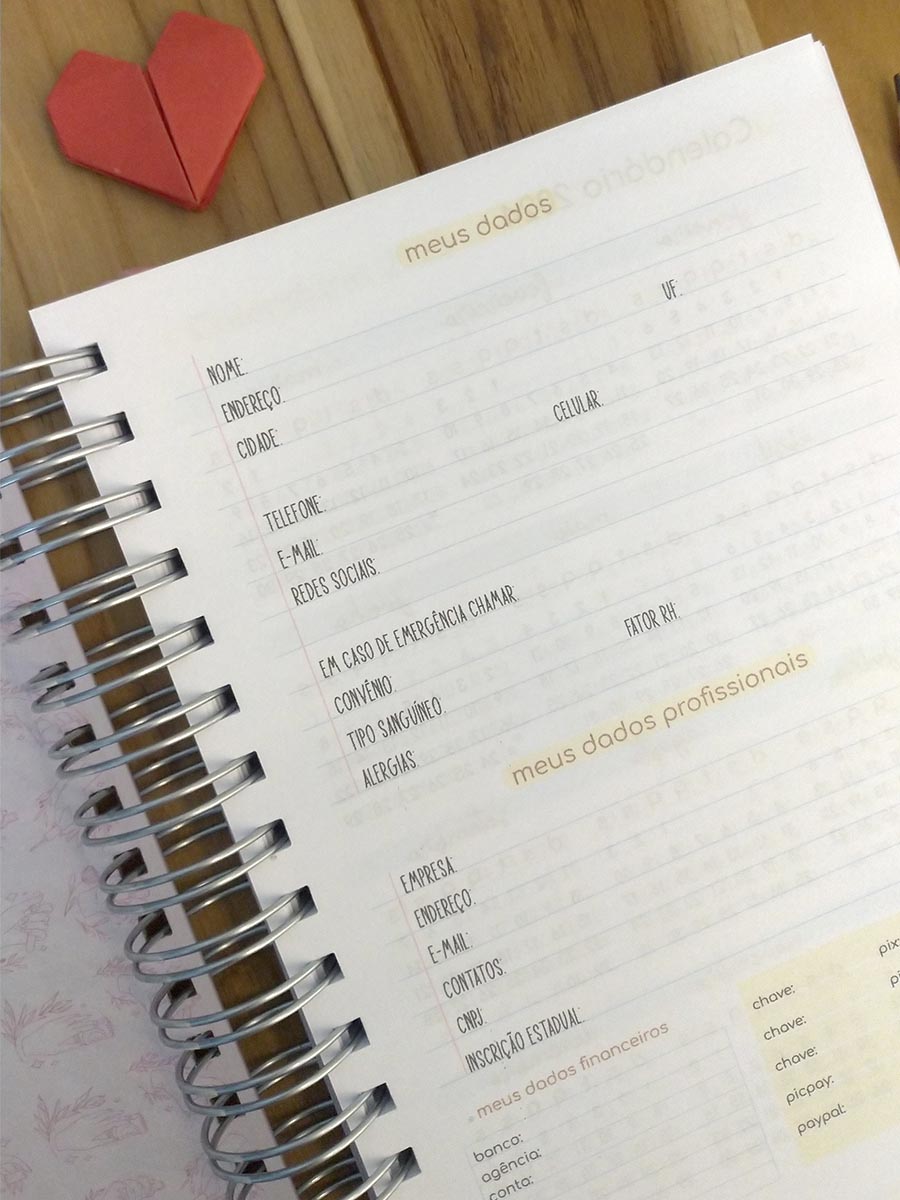 meus dados
NOME:
ENDEREÇO:
CIDADE: UF:
TELEFONE: CELULAR:
E-MAIL:
REDES SOCIAIS:
EM CASO DE EMERGÊNCIA CHAMAR:
CONVÊNIO:
TIPO SANGUÍNEO: FATOR RH:
ALERGIAS:
meus dados profissionais
EMPRESA:
ENDEREÇO:
E-MAIL:
CONTATOS:
CNPJ:
INSCRIÇÃO ESTADUAL:
meus dados financeiros
banco:
agência:
conta:
pix:
chave:
chave:
chave:
picpay:
paypal: